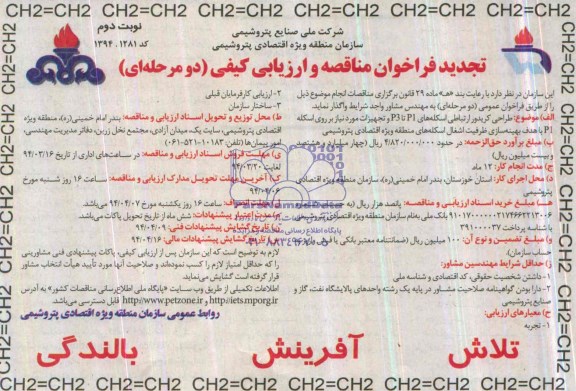 CH2=CH2 CH2=CH2 CH2=CH2 CH2=CH2 CH2=CH2 CH2=CH2 CH2=CH2
شرکت ملی صنایع پتروشیمی
سازمان منطقه ویژه اقتصادی پتروشیمی
نوبت دوم
کد ۱۲۸۱. ۱۳۹۴
تجدید فراخوان مناقصه و ارزیابی کیفی (دو مرحله‌ای)
این سازمان در نظر دارد با رعایت بند «ه» ماده ۲۹ قانون برگزاری مناقصات انجام موضوع ذیل
را از طریق فراخوان عمومی (دو مرحله‌ای) به مهندس مشاور واجد شرایط واگذار نماید.
الف) موضوع: طراحی کریدور ارتباطی اسکله‌های P1 تا P3 و تجهیزات مورد نیاز بر روی اسکله
P1 با هدف بهینه‌سازی ظرفیت اشغال اسکله‌های منطقه ویژه اقتصادی پتروشیمی
ب) مبلغ برآورد حق‌الزحمه: در حدود ۴/۸۲۰/۰۰۰/۰۰۰ ریال (چهار میلیارد و هشتصد
و بیست میلیون ریال)
ج) مدت انجام کار: ۱۲ ماه
د) محل اجرای کار: استان خوزستان، بندر امام خمینی(ره)، سازمان منطقه ویژه اقتصادی
پتروشیمی
ه) مبلغ خرید اسناد ارزیابی و مناقصه: پانصد هزار ریال
بانک ملی به‌نام سازمان منطقه ویژه اقتصادی
با شناسه پرداخت ۳۹۱۰۰۰۰۳۷
و) مبلغ تضمین و نوع آن: ۱۰۰ میلیون ریال (ضمانتنامه معتبر بانکی یا فیش واریز
حساب سازمان)
ز) حداقل شرایط مهندسین مشاور:
۱- داشتن شخصیت حقوقی، کد اقتصادی و شناسه ملی
۲- دارا بودن گواهینامه صلاحیت مشاور در پایه یک رشته واحدهای پالایشگاه نفت، گاز و
صنایع پتروشیمی
ح) معیارهای ارزیابی:
۱- تجربه
۲- ارزیابی کارفرمایان قبلی
۳- ساختار سازمان
ط) محل توزیع و تحویل اسناد ارزیابی و مناقصه: بندر امام خمینی(ره)، منطقه ویژه
اقتصادی پتروشیمی، سایت یک، میدان آزادی، مجتمع نخل زرین، دفتر مدیریت مهندسی،
امور پیمان‌ها (تلفن: ۱۰۱۸۳-۵۲۱-۰۶۱)
ی) مهلت فروش اسناد ارزیابی و مناقصه: در ساعت‌های اداری از تاریخ ۹۴/۰۳/۱۶
لغایت ۹۴/۰۳/۲۰
ک) آخرین مهلت تحویل مدارک ارزیابی و مناقصه: ساعت ۱۶ روز شنبه مورخ
۹۴/۰۴/۰۶
ساعت ۱۶ روز یکشنبه مورخ ۹۴/۰۴/۰۷ می‌باشد.
مدت اعتبار پیشنهادات: شش ماه از تاریخ تحویل پاکات می‌باشد.
تاریخ گشایش پیشنهادات فنی: ۹۴/۰۴/۰۹
تاریخ گشایش پیشنهادات مالی: ۹۴/۰۴/۱۶
لازم به توضیح است که این سازمان پس از ارزیابی کیفی، پاکات پیشنهادی فنی مشاورینی
را که حداقل امتیاز لازم را کسب نموده‌اند و صلاحیت آنها مورد تأیید هیأت انتخاب مشاور
قرار گرفته است گشایش می‌نماید.
اطلاعات تکمیلی از طریق وب‌سایت «پایگاه ملی اطلاع‌رسانی مناقصات کشور» به آدرس
http://iets.mporg.ir و http://www.petzone.ir قابل دسترسی می‌باشد.
روابط عمومی سازمان منطقه ویژه اقتصادی پتروشیمی
تلاش آفرینش بالندگی
CH2=CH2 CH2=CH2 CH2=CH2 CH2=CH2 CH2=CH2 CH2=CH2 CH2=CH2